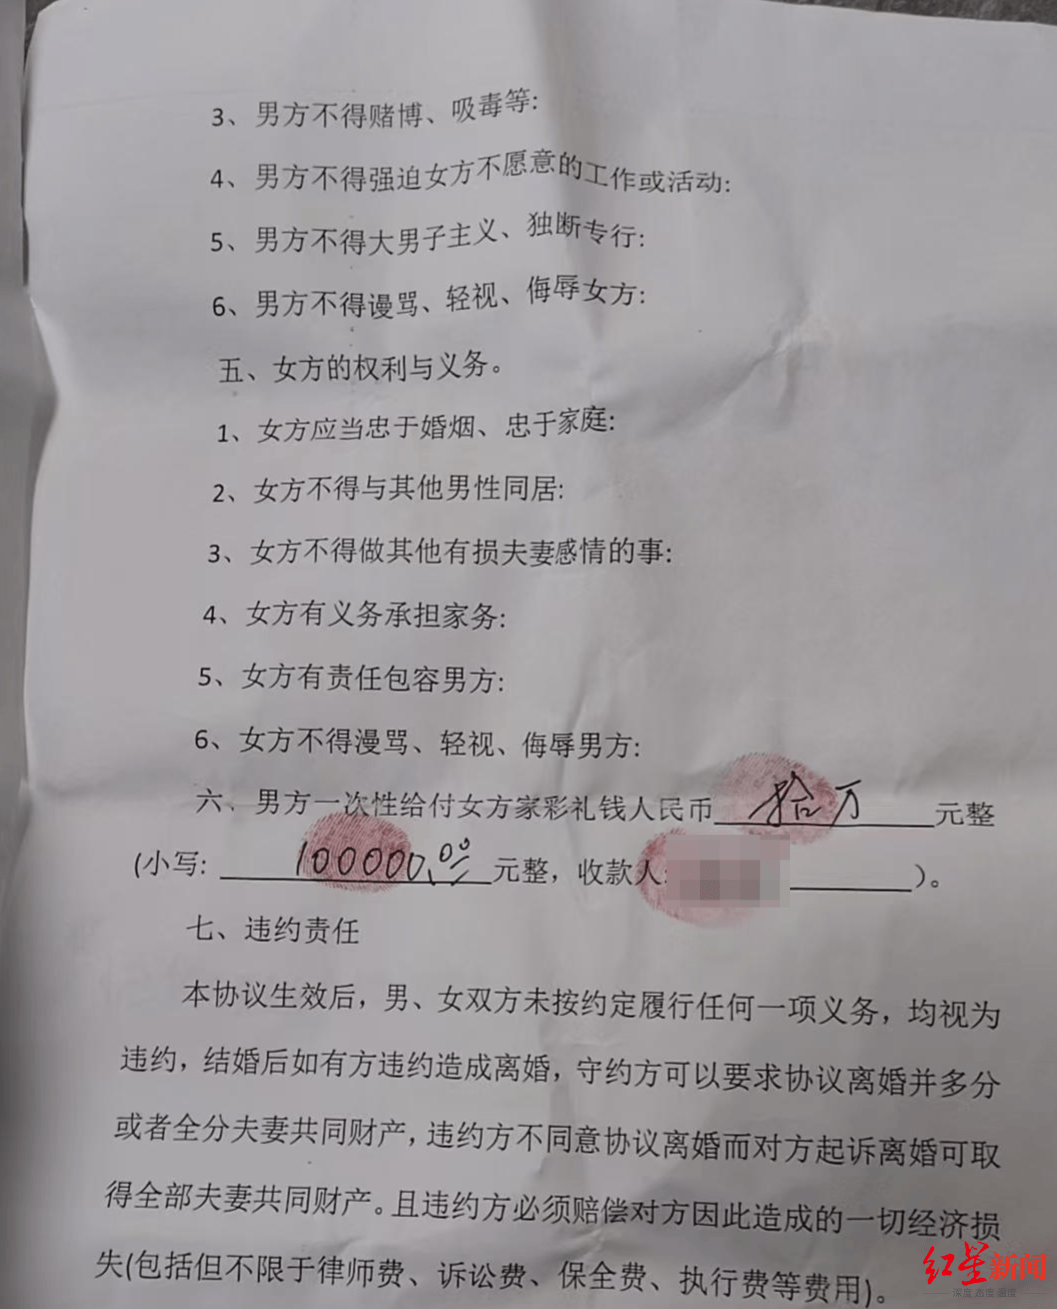 3、男方不得赌博、吸毒等:
4、男方不得强迫女方不愿意的工作或活动:
5、男方不得大男子主义、独断专行:
6、男方不得谩骂、轻视、侮辱女方:
五、女方的权利与义务。
1、女方应当忠于婚烟、忠于家庭:
2、女方不得与其他男性同居:
3、女方不得做其他有损夫妻感情的事:
4、女方有义务承担家务:
5、女方有责任包容男方:
6、女方不得漫骂、轻视、侮辱男方:
六、男方一次性给付女方家彩礼钱人民币 拾万 元整
(小写: 100000.00 元整，收款人: )。
七、违约责任
本协议生效后，男、女双方未按约定履行任何一项义务，均视为
违约，结婚后如有方违约造成离婚，守约方可以要求协议离婚并多分
或者全分夫妻共同财产，违约方不同意协议离婚而对方起诉离婚可取
得全部夫妻共同财产。且违约方必须赔偿对方因此造成的一切经济损
失(包括但不限于律师费、诉讼费、保全费、执行费等费用)。
红星新闻
深度 态度 温度